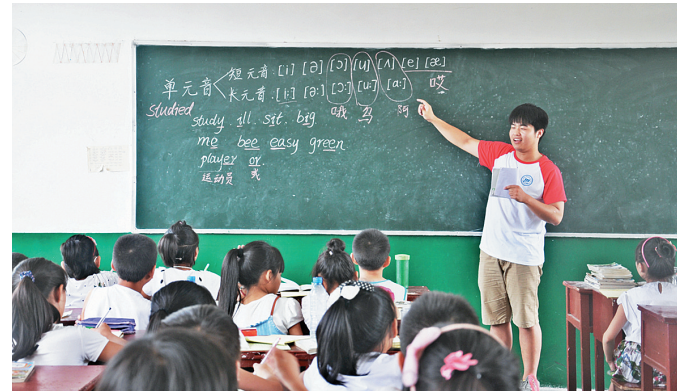 单元音
短元音:[i] [ə] [ɔ] [u] [ʌ] [e] [æ]
长元音:[i:] [ə:] [ɔ:] [u:] [ɑ:] 哎
studied
study ill sit big
哦 乌 啊
me bee easy green
player or
运动员 或